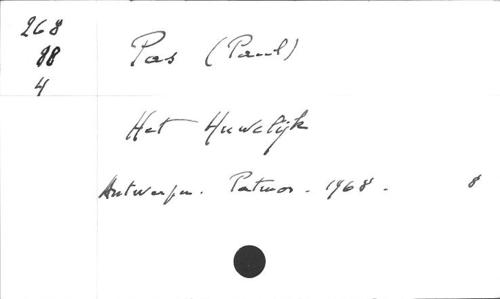 268
88
4
Pas (Paul)
Het Huwelijk
Antwerpen. Patmos. 1968. 8